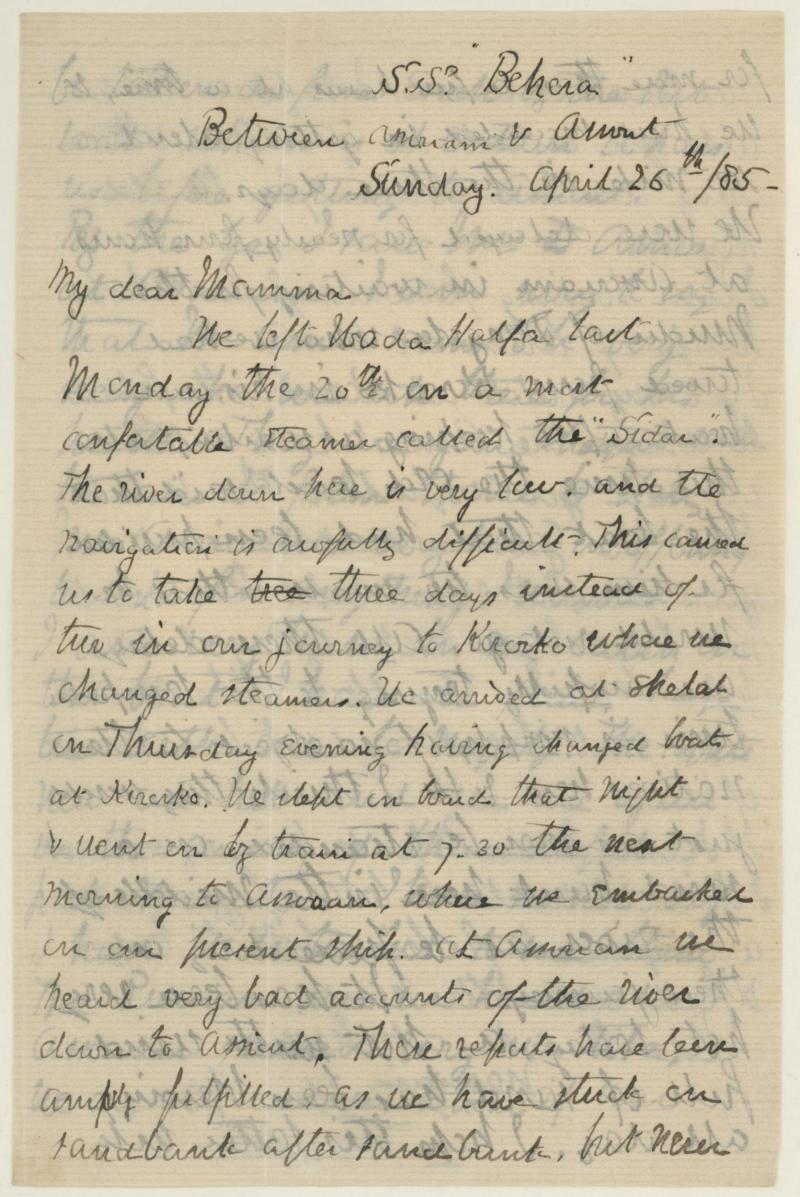 S.S. "Behera"
Between Assouan & Assiout
Sunday. April 26th/85-
My dear Mamma
We left Wada Halfa last
Monday the 20th on a most
confortable steamer called the "Sidar".
The river down here is very low. and the
navigation is awfully difficult. This caused
us to take tree three days instead of
two in our journey to Korosko where we
changed steamers. We arrived at Shelal
on Thursday evening having changed boats
at Korosko. We slept on board that night
& went on by train at 7.30 the next
morning to Assouan, where we embarked
on our present ship. At Assouan we
heard very bad accounts of the river
down to Assiout. These reports have been
amply fulfilled. as we have stuck on
sandbank after sandbank. but never